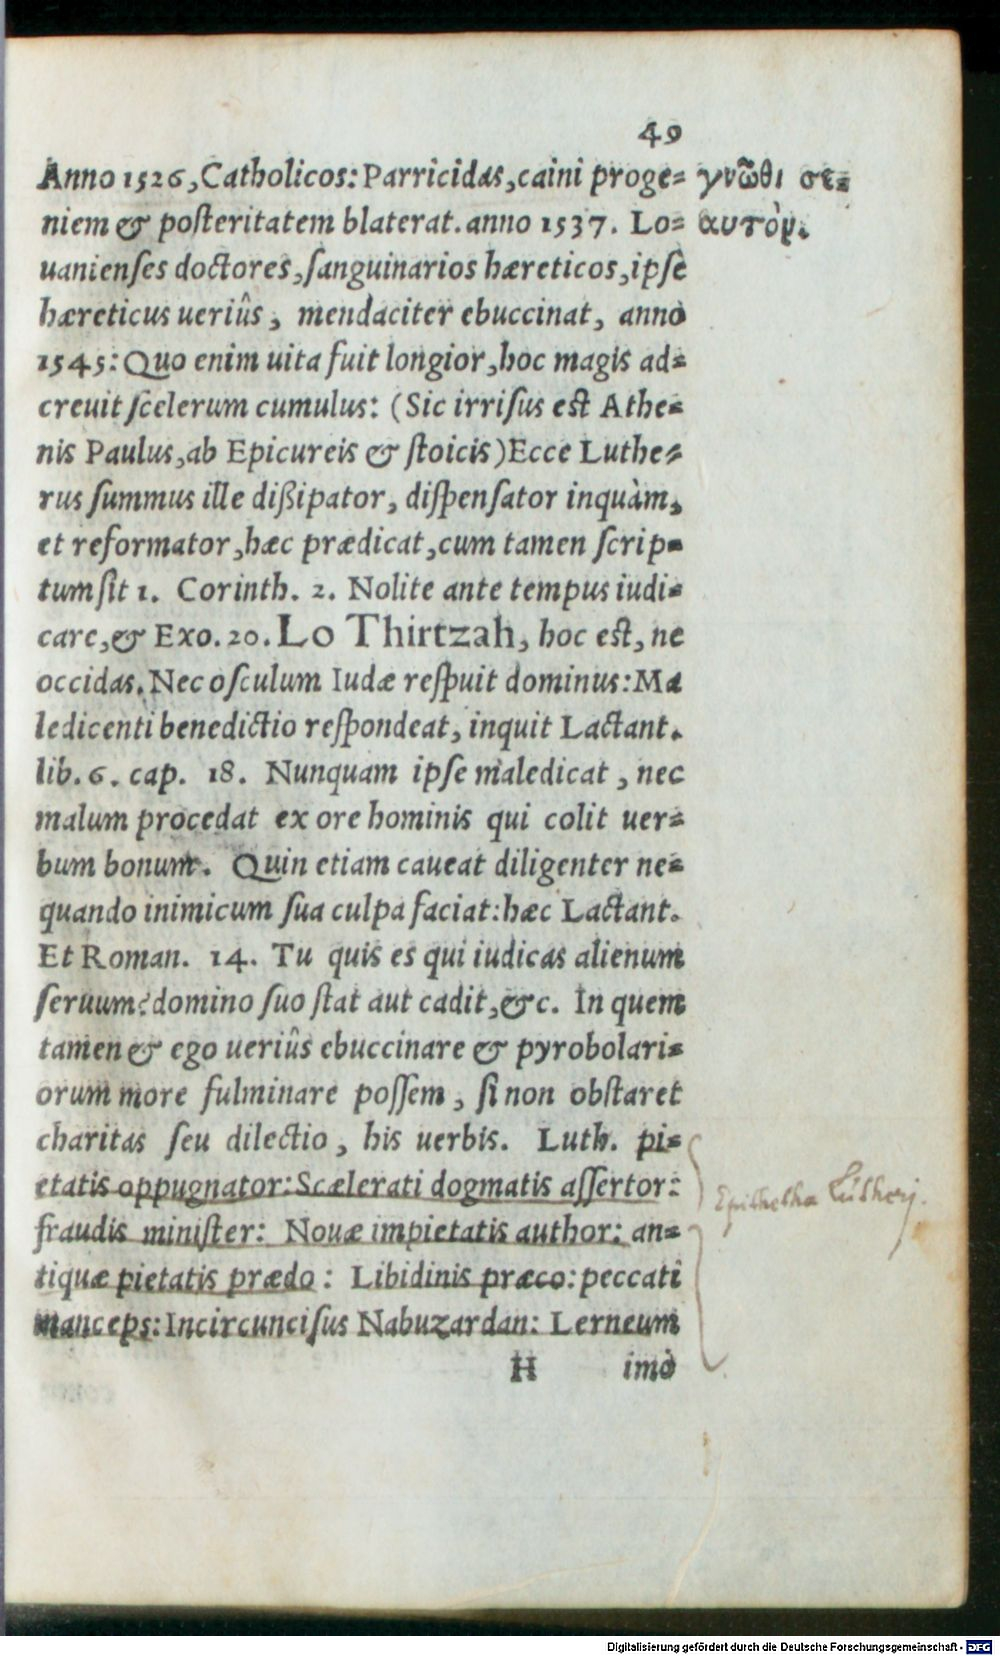 49
Anno 1526, Catholicos: Parricidas, caini proge= γνῶθι σε=
niem & posteritatem blaterat. anno 1537. Lo= αυτόν.
uanienses doctores, sanguinarios hæreticos, ipse
hæreticus ueriùs, mendaciter ebuccinat, anno
1545: Quo enim uita fuit longior, hoc magis ad=
creuit scelerum cumulus: (Sic irrisus est Athe=
nis Paulus, ab Epicureis & stoicis) Ecce Luthe=
rus summus ille dißipator, dispensator inquàm,
et reformator, hæc prædicat, cum tamen scrip=
tum sit 1. Corinth. 2. Nolite ante tempus iudi=
care, & Exo. 20. Lo Thirtzah, hoc est, ne
occidas. Nec osculum Iudæ respuit dominus: Ma
ledicenti benedictio respondeat, inquit Lactant.
lib. 6. cap. 18. Nunquam ipse maledicat, nec
malum procedat ex ore hominis qui colit uer=
bum bonum. Quin etiam caueat diligenter ne=
quando inimicum sua culpa faciat: hæc Lactant.
Et Roman. 14. Tu quis es qui iudicas alienum
seruum? domino suo stat aut cadit, &c. In quem
tamen & ego ueriûs ebuccinare & pyrobolari=
orum more fulminare possem, si non obstaret
charitas seu dilectio, his uerbis. Luth. pi=
etatis oppugnator: Scælerati dogmatis assertor: Epitheta Lutherj.
fraudis minister: Nouæ impietatis author: an=
tiquæ pietatis prædo: Libidinis præco: peccati
manceps: Incircuncisus Nabuzardan: Lerneum
H imò
Digitalisierung gefördert durch die Deutsche Forschungsgemeinschaft - DFG